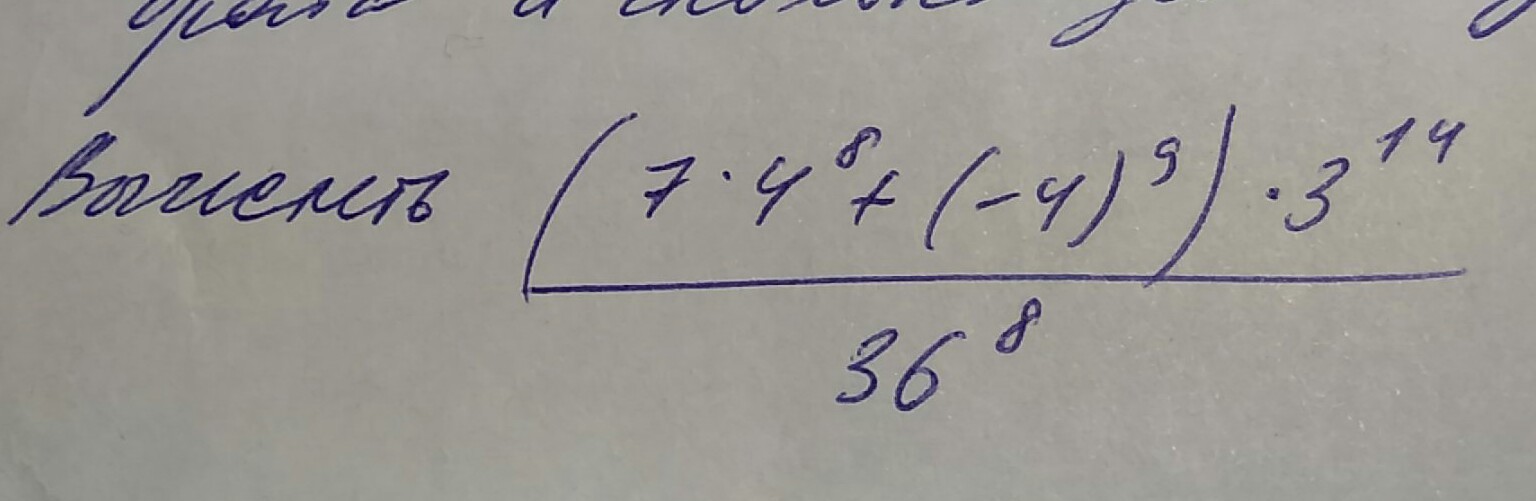 Вычислить (7·4⁸+(-4)⁹)·3¹⁴
36⁸